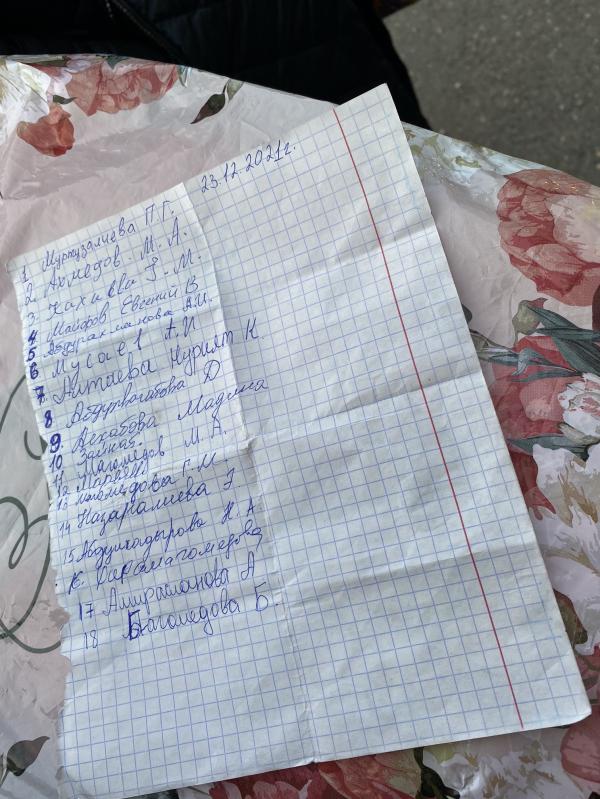 23.12.2021г.
1 Муртузалиева П.Г.
2 Ахмедов М.А.
3 З.М.
4 Майфов Евгений В
5 Абдурахманова А.И.
6 Мусаев А.И
7 Алтаева Нурият Н.
8 Абдулвагабова Д
9 Асхабова Мадина
10 Зайнаб
11 Магомедов М.А.
12
13 Магомедова Г.М
14 Назаралиева З
15 Абдулкадырова Н.А
16. Рамамагомедова
17 Амирасланова А
18 Багомедова Б.